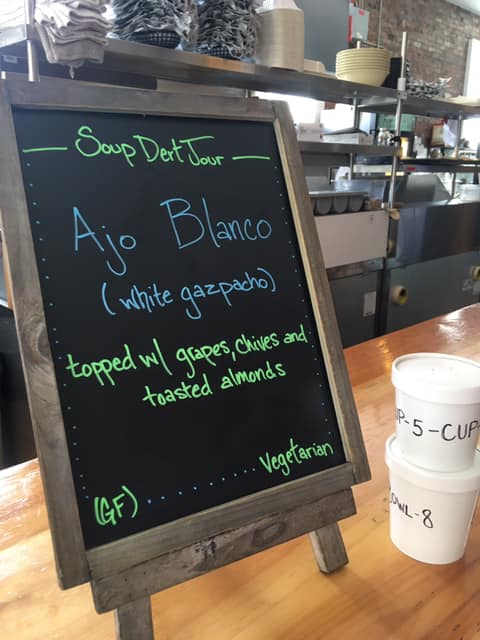 — Soup Dert Jour —
Ajo Blanco
(white gazpacho)
topped w/ grapes, chives and
toasted almonds
(GF) ........... Vegetarian
-5-CUP
-8